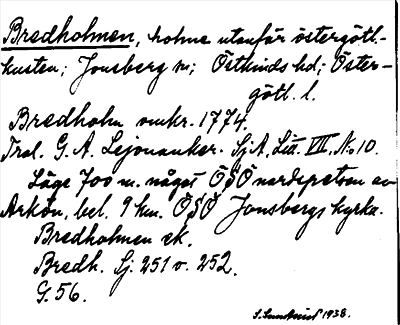 Bredholmen, holme utanför östergötl.-
kusten; Jonsberg sn; Östkinds hd; Öster-
götl. l.
Bredholm omkr. 1774
Tral. G. A. Lejonanker. Sj.A. Litt. VII. No 10.
Läge 700 m. något ÖSÖ nordspetsen av
Arkön, bel. 9 km. ÖSÖ Jonsbergs kyrka.
Bredholmen ek.
Bredh. Lj. 251 o. 252.
G. 56.
1938.